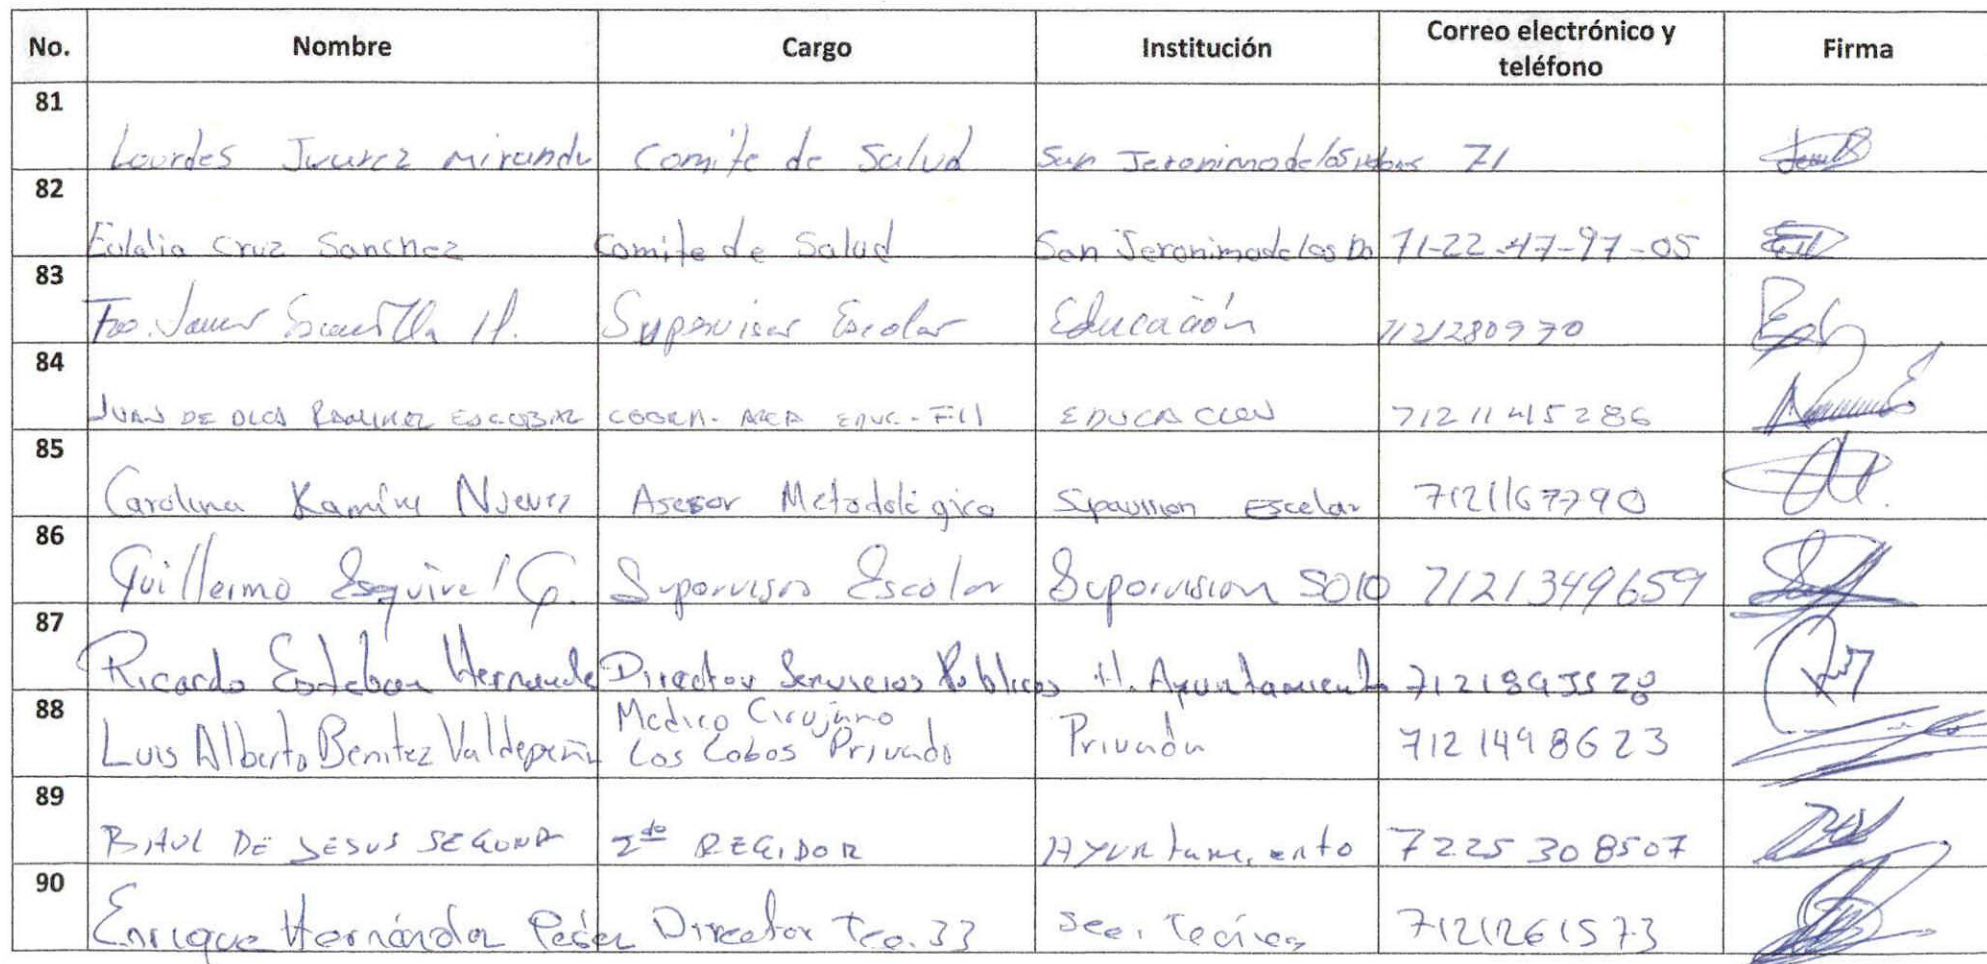 No. Nombre Cargo Institución Correo electrónico y teléfono Firma
81 Lourdes Juarez Miranda Comite de Salud San Jeronimo de los 71
82 Eulalia Cruz Sanchez Comite de Salud San Jeronimo de los Do 71-22-47-97-05
83 Fco. Javier H. Supervisor Escolar Educación 7121280970
84 JUAN DE DIOS RAMIREZ ESCOBAR COORD. AREA EDUC. EDUCACION 7121145286
85 Carolina Ramírez Nuevez Asesor Metodológico Supervision Escolar 7121167790
86 Guillermo Esquivel G. Supervisor Escolar Supervision S010 7121349659
87 Ricardo Esteban Hernande Director Servicios Publicos H. Ayuntamiento 7121895528
88 Luis Alberto Benitez Valdepeña Medico Cirujano Los Lobos Privado Privada 7121498623
89 RAUL DE JESUS SEGUNDO 2do REGIDOR Ayuntamiento 7225308507
90 Enrique Hernández Director Tec. 33 Sec. Tecnica 7121261573